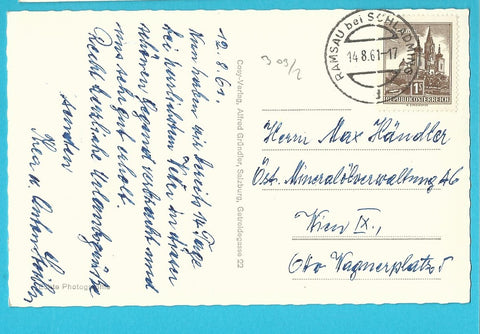 12.8.61.
Nun haben wir bereits 14 Tage
bei herrlichem Wetter in dieser
schönen Gegend verbracht und
uns sehr gut erholt.
Recht herzliche Urlaubsgrüße
senden
Copy-Verlag, Alfred Gründler, Salzburg, Getreidegasse 22
Photographie
309/2
RAMSAU bei SCHLADMING
14.8.61-17
a
1 S
REPUBLIK ÖSTERREICH
Herrn Max Händler
Öst. Mineralölverwaltung AG
Wien IX.,
Otto Wagnerplatz 5